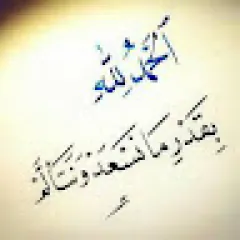 اَلْحَمْدُ لِلّٰهِ
بِقَدْرِ مَا نَسْعَدُ وَنَتَأَلَّمُ